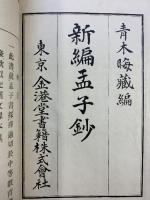 青木晦藏編
新編孟子鈔
東京 金港堂書籍株式會社